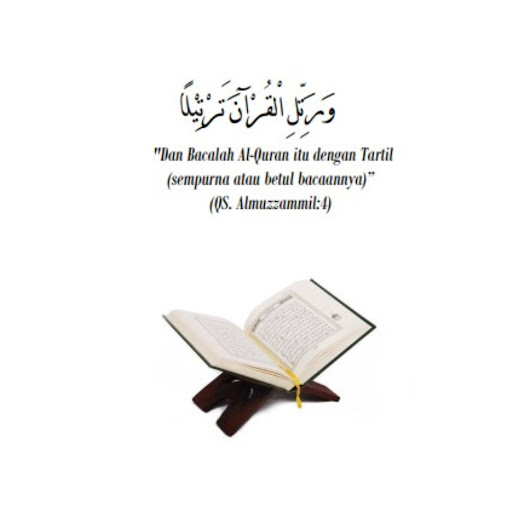 وَرَتِّلِ الْقُرْآنَ تَرْتِيْلًا
"Dan Bacalah Al-Quran itu dengan Tartil
(sempurna atau betul bacaannya)”
(QS. Almuzzammil:4)